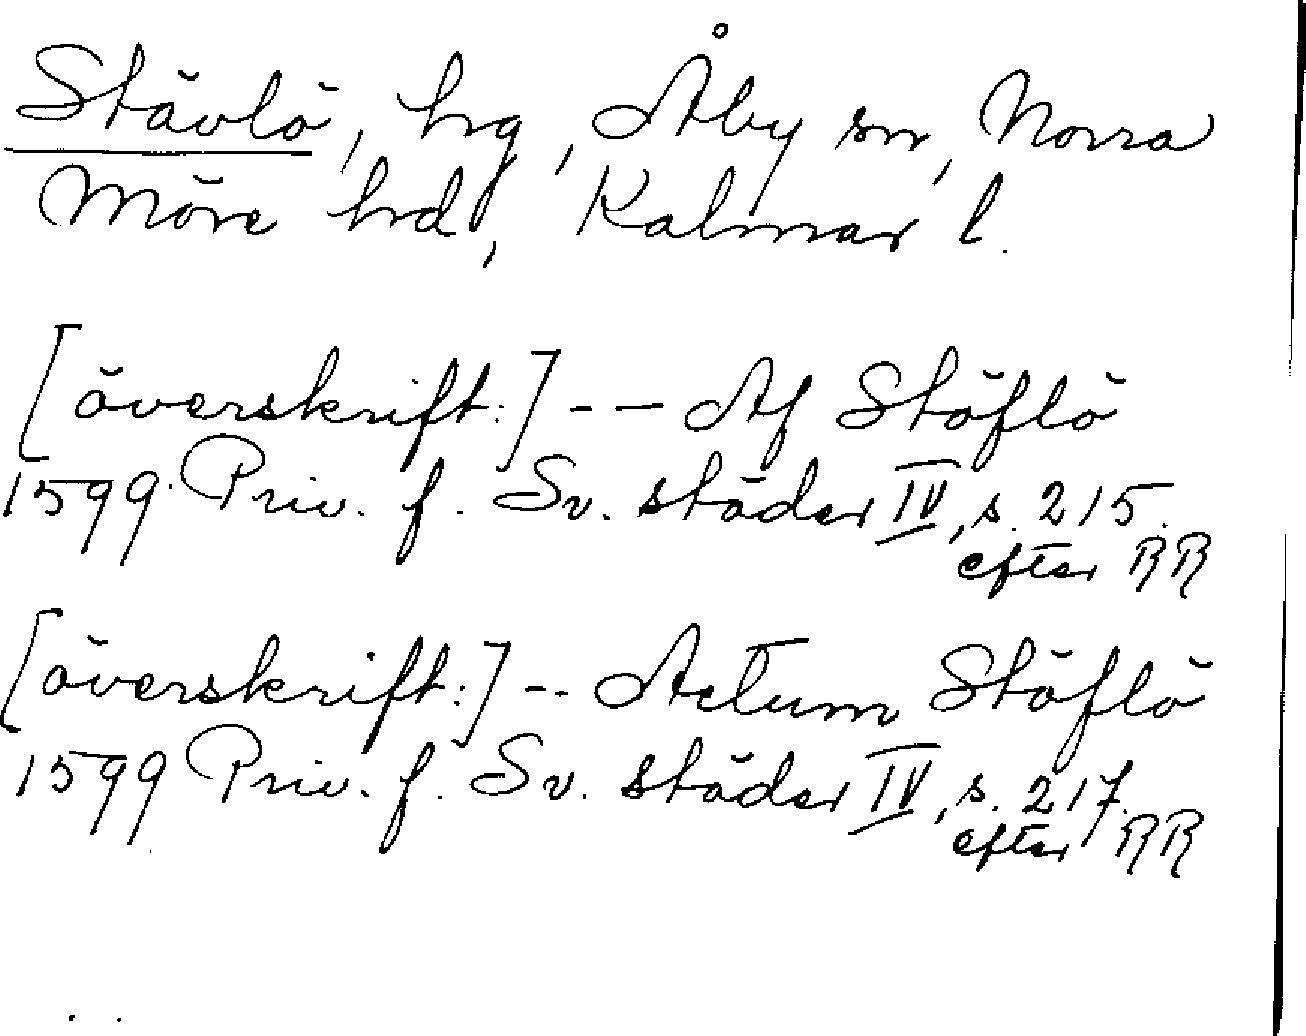 Stävlö, hrg, Åby sn, Norra
Möre hrd, Kalmar l.
[överskrift:] -- Af Stöflö
1599 Priv. f. Sv. städer IV, s. 215.
efter RR
[överskrift:] -- Actum Stöflö
1599 Priv. f. Sv. städer IV, s. 217.
efter RR